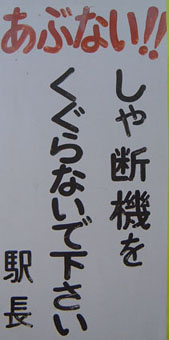 あぶない!!
しゃ断機を
くぐらないで下さい
駅長